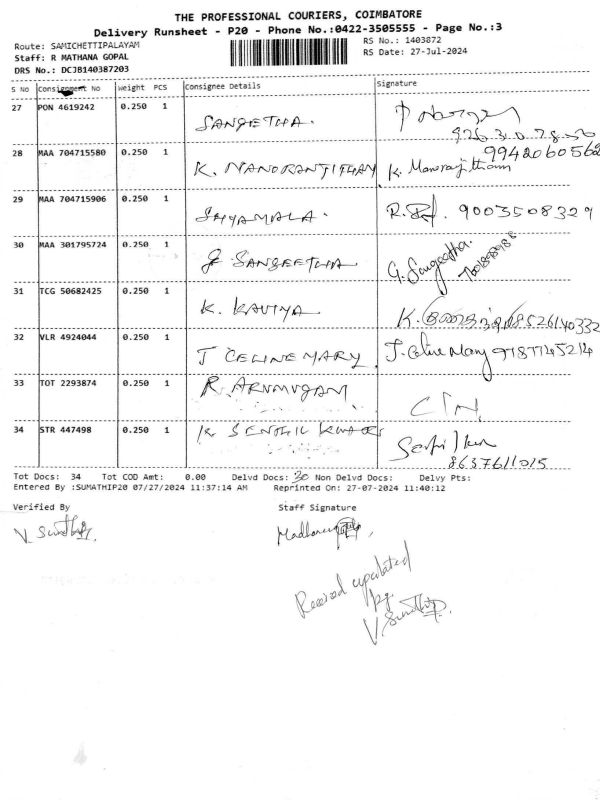 THE PROFESSIONAL COURIERS, COIMBATORE
Delivery Runsheet - P20 - Phone No.:0422-3505555 - Page No.:3
Route: SAMICHETTIPALAYAM RS No.: 1403872
Staff: R MATHANA GOPAL RS Date: 27-Jul-2024
DRS No.: DCJB140387203
S No Consignment No Weight PCS Consignee Details Signature
27 PON 4619242 0.250 1 SANGEETHA.
28 MAA 704715580 0.250 1 K. MANORANJITHAM K. Manorajitham 9942060562
29 MAA 704715906 0.250 1 SHYAMALA. R. 9003508329
30 MAA 301795724 0.250 1 G SANGEETHA G. Sangeetha.
31 TCG 50682425 0.250 1 K. KAVIYA K. 8526140332
32 VLR 4924044 0.250 1 J CELINE MARY J. Celine Mary 9787745214
33 TOT 2293874 0.250 1 R. ARUMUGAM
34 STR 447498 0.250 1 K SENTHIL KUMAR
8637611015
Tot Docs: 34 Tot COD Amt: 0.00 Delvd Docs: 30 Non Delvd Docs: Delvy Pts:
Entered By :SUMATHIP20 07/27/2024 11:37:14 AM Reprinted On: 27-07-2024 11:40:12
Verified By Staff Signature
V. Sumathi
Record updated
by.
V. Sumathi